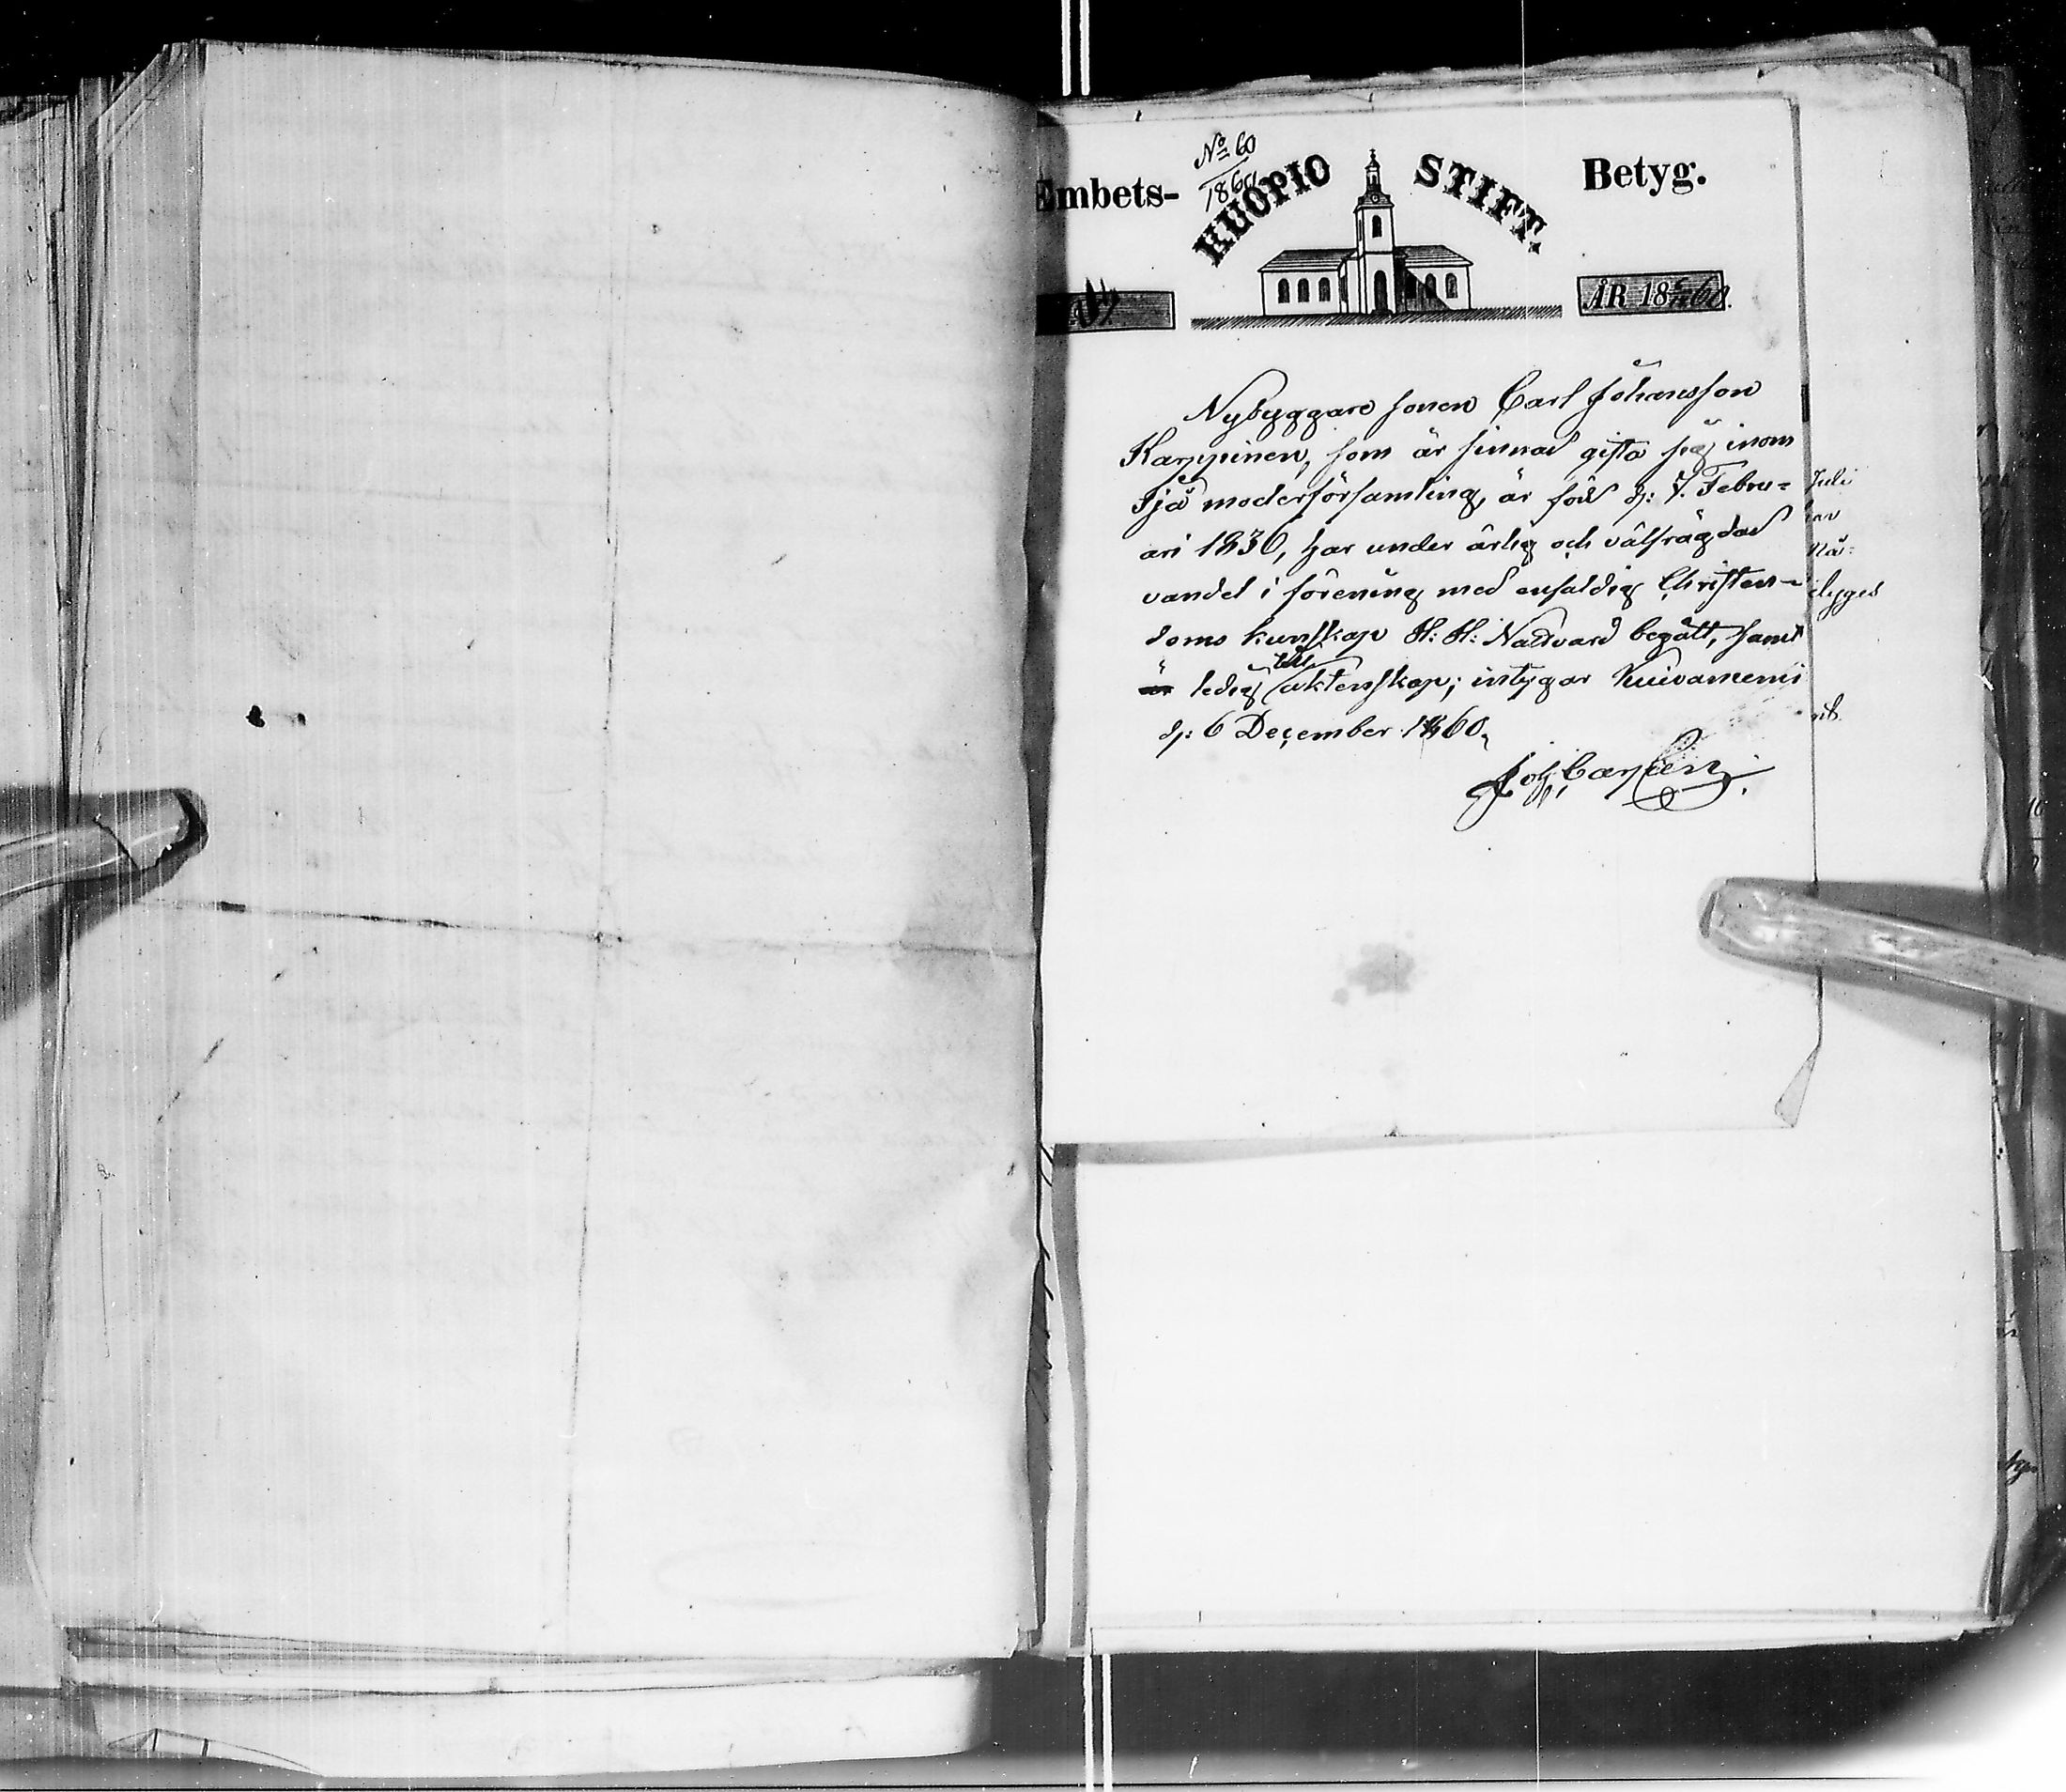 No 60
1860
Embets-
KUOPIO STIFT.
Betyg.
ÅR 1860.
Nybyggare sonen Carl Johansson
Karppinen, som är sinnad gifta sig inom
Ijå moderförsamling, är född d: 7. Febru-
ari 1836, har under ärlig och välfrägdad
vandel i förening med enfaldig Christen-
doms kunskap H: H: Nattvard begått, samt
är ledig till äktenskap; intygar Kuivaniemi
d: 6 December 1860.
Joh, Carlen
Juli